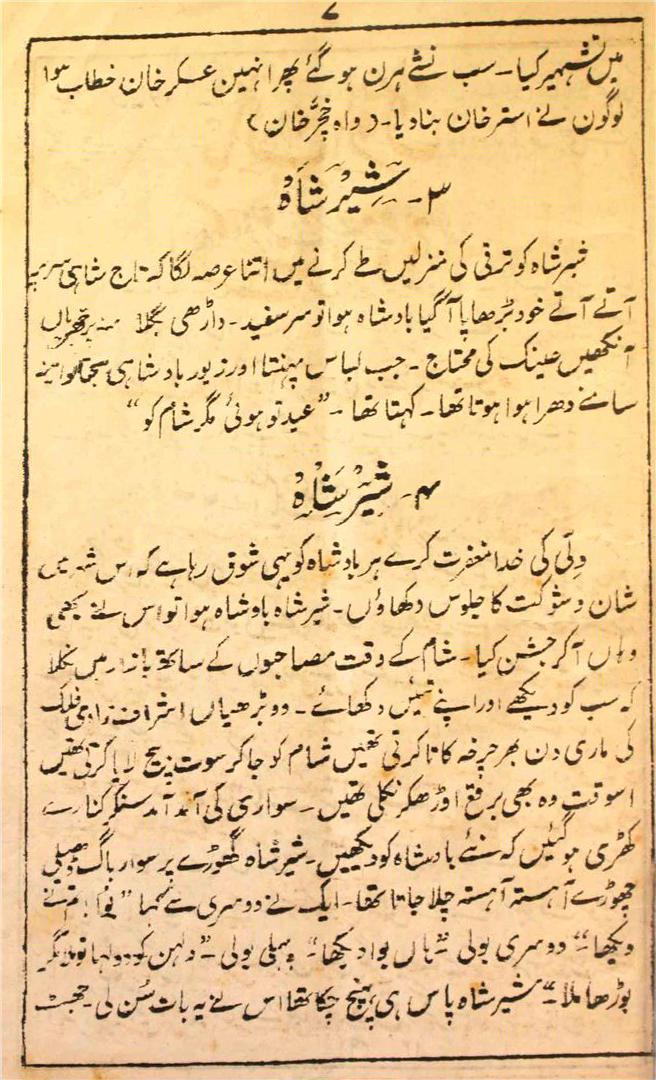 ۷
میں تشہیر کیا۔ سب نشے ہرن ہو گئے پھر انہین عسکر خان خطاب ہوا
لوگون نے استر خان بنا دیا۔ (واہ خچّر خان)
۳۔ شیر شاہ
شیر شاہ کو ترقی کی منزلیں طے کرنے میں اتنا عرصہ لگا کہ تاج شاہی سر پہ
آتے آتے خود بڑھاپا آ گیا بادشاہ ہوا تو سر سفید۔ داڑھی بگلا منہ پر جھریاں
آنکھیں عینک کی محتاج۔ جب لباس پہنتا اور زیور بادشاہی سجتا تو آئینہ
سامنے دھرا ہوا ہوتا تھا۔ کہتا تھا۔ ”عید تو ہوئی مگر شام کو“
۴۔ شیر شاہ
دِلّی کی خدا مغفرت کرے ہر بادشاہ کو یہی شوق رہا ہے کہ اس شہر میں
شان و شوکت کا جلوس دکھاؤں۔ شیر شاہ بادشاہ ہوا تو اس نے بھی
وہاں آ کر جشن کیا۔ شام کے وقت مصاحبوں کے ساتھ بازار میں نکلا
کہ سب کو دیکھے اور اپنے تئیں دکھائے۔ دو بڑھیاں اشراف زادی فلک
کی ماری دن بھر چرخہ کاتا کرتی تھیں شام کو جا کر سوت بیچ لایا کرتی تھیں
اسوقت وہ بھی برقع اوڑھکر نکلی تھیں۔ سواری کی آمد آمد سنکر کنارے
کھڑی ہو گئیں کہ نئے بادشاہ کو دیکھیں۔ شیر شاہ گھوڑے پر سوار باگ ڈھیلی
چھوڑے آہستہ آہستہ چلا جاتا تھا۔ ایک نے دوسری سے کہا ”بوا تم نے
دیکھا“ دوسری بولی ”ہاں بوا دیکھا“ پہلی بولی۔ ”دلہن کو دولہا تو ملا مگر
بوڑھا ملا۔“ شیر شاہ پاس ہی پہنچ چکا تھا اس نے یہ بات سُن لی۔ جھٹ